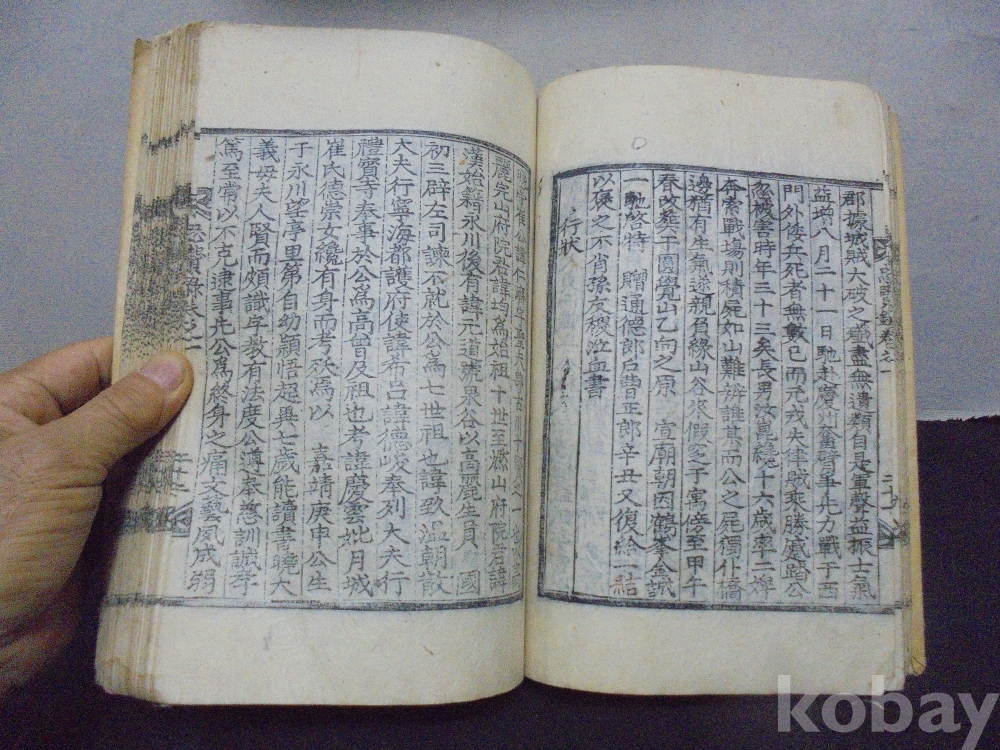 郡據城賊大破之殲盡無遺類自是軍聲益振士氣
益增八月二十一日馳赴慶州奮臂爭先力戰于西
門外倭兵死者無數已而元戎失律賊乘勝蹙踏公
忽被害時年三十三矣長男汝崑纔十六歲率二婢
奔索戰場則積屍如山難辨誰某而公之屍獨仆橋
邊猶有生氣遂親負緣山谷來假窆于寓傍至甲午
春改葬于圓覺山乙向之原 宣廟朝因鶴峯金誠
一馳啓特 贈通德郎戶曹正郎辛丑又復給一結
以褒之不肖孫友稷泣血書
行狀
麗完山府院君諱均爲始祖十世至燃山府院君諱
漢始籍永川後有諱元道號泉谷以高麗生員 國
初三辟左司諫不就於公爲七世祖也諱致溫朝散
大夫行寧海都護府使諱布呂諱德峻奉列大夫行
禮賓寺奉事於公爲高曾及祖也考諱慶雲妣月城
崔氏德崇女纔有身而考歿焉以 嘉靖庚申公生
于永川望亭里第自幼穎悟起異七歲能讀書曉大
義母夫人賢而頗識字敎有法度公遵奉慈訓誠孝
篤至常以不克逮事先公爲終身之痛文藝夙成弱
kobay